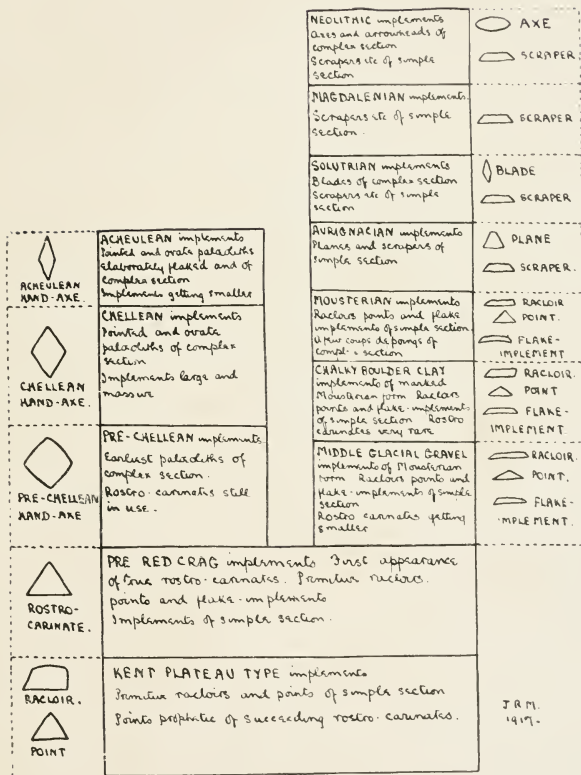 NEOLITHIC implements
Axes and arrowheads of
complex section
Scrapers etc of simple
section
AXE
SCRAPER
MAGDALENIAN implements.
Scrapers etc of simple
section.
SCRAPER
SOLUTRIAN implements
Blades of complex section
Scrapers etc of simple
section
BLADE
SCRAPER
AURIGNACIAN implements
Planes and scrapers of
simple section
PLANE
SCRAPER.
MOUSTERIAN implements
Racloirs points and flake
implements of simple section
A few coups de poings of
complex section
RACLOIR
POINT.
FLAKE-
IMPLEMENT
CHALKY BOULDER CLAY
implements of marked
Mousterian form Racloirs
points and flake-implements
of simple section Rostro
carinates very rare
RACLOIR.
POINT
FLAKE-
IMPLEMENT.
MIDDLE GLACIAL GRAVEL
implements of Mousterian
form Racloirs points and
flake-implements of simple
section
Rostro carinates getting
smaller
RACLOIR.
POINT.
FLAKE-
IMPLEMENT.
ACHEULEAN
HAND-AXE.
ACHEULEAN implements
Pointed and ovate palaeoliths
elaborately flaked and of
complex section
Implements getting smaller
CHELLEAN
HAND-AXE.
CHELLEAN implements
Pointed and ovate
palaeoliths of complex
section
Implements large and
massive
PRE-CHELLEAN
HAND-AXE
PRE-CHELLEAN implements.
Earliest palaeoliths of
complex section.
Rostro-carinates still
in use.
ROSTRO-
CARINATE.
PRE RED CRAG implements First appearance
of true rostro-carinates. Primitive racloirs.
points and flake-implements
Implements of simple section.
RACLOIR.
POINT
KENT PLATEAU TYPE implements
Primitive racloirs and points of simple section
Points prophetic of succeeding rostro-carinates.
J R M.
1917.